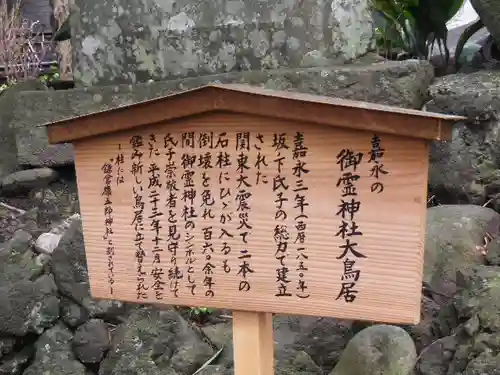 嘉永の
御霊神社大鳥居
嘉永三年(西暦一八五〇年)
坂ノ下氏子の総力で建立
された
関東大震災で二本の
石柱にひびが入るも
倒壊を免れ百六〇余年の
間御霊神社のシンボルとして
氏子崇敬者を見守り続けて
きた平成二十三年十二月安全を
鑑み新しい鳥居に立て替えられた
―柱には
“鎌倉権五郎神社”と刻されている―